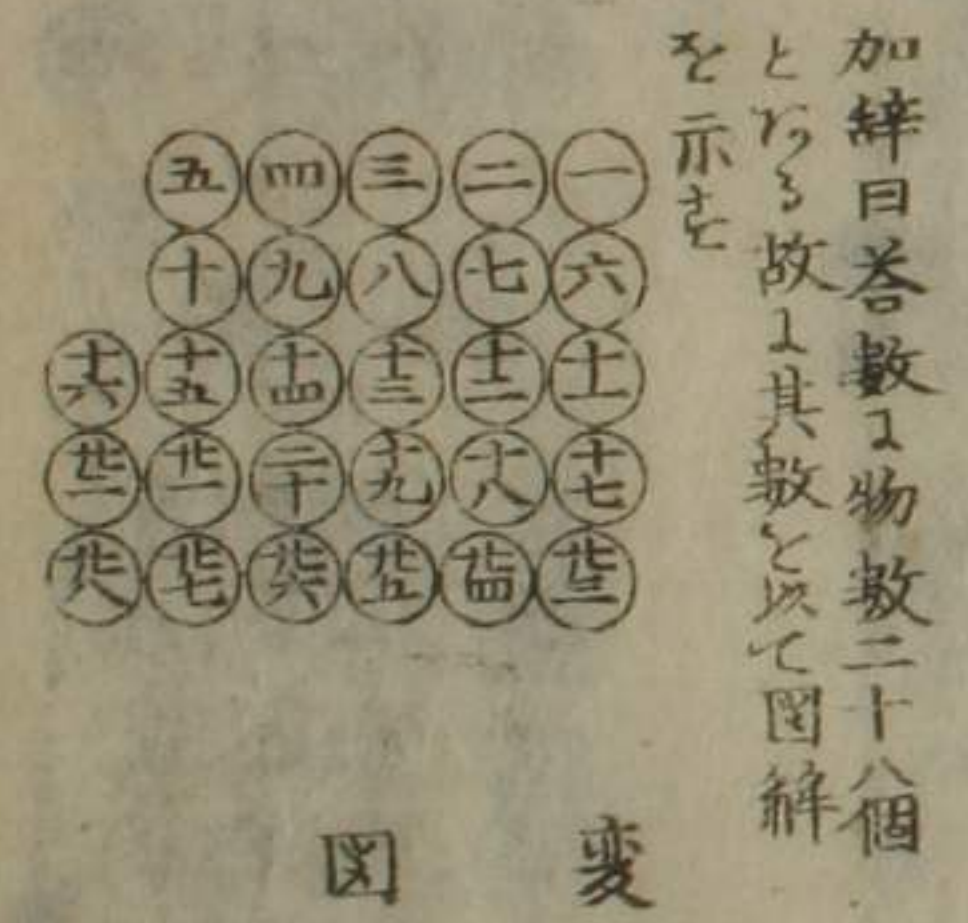 加辞曰答數ヱ物數二十八個
となる故ヱ其數を以て図解
を示す
一 二 三 四 五
六 七 八 九 十
十一 十二 十三 十四 十五 十六
十七 十八 十九 二十 廿一 廿二
廿三 廿四 廿五 廿六 廿七 廿八
変 図